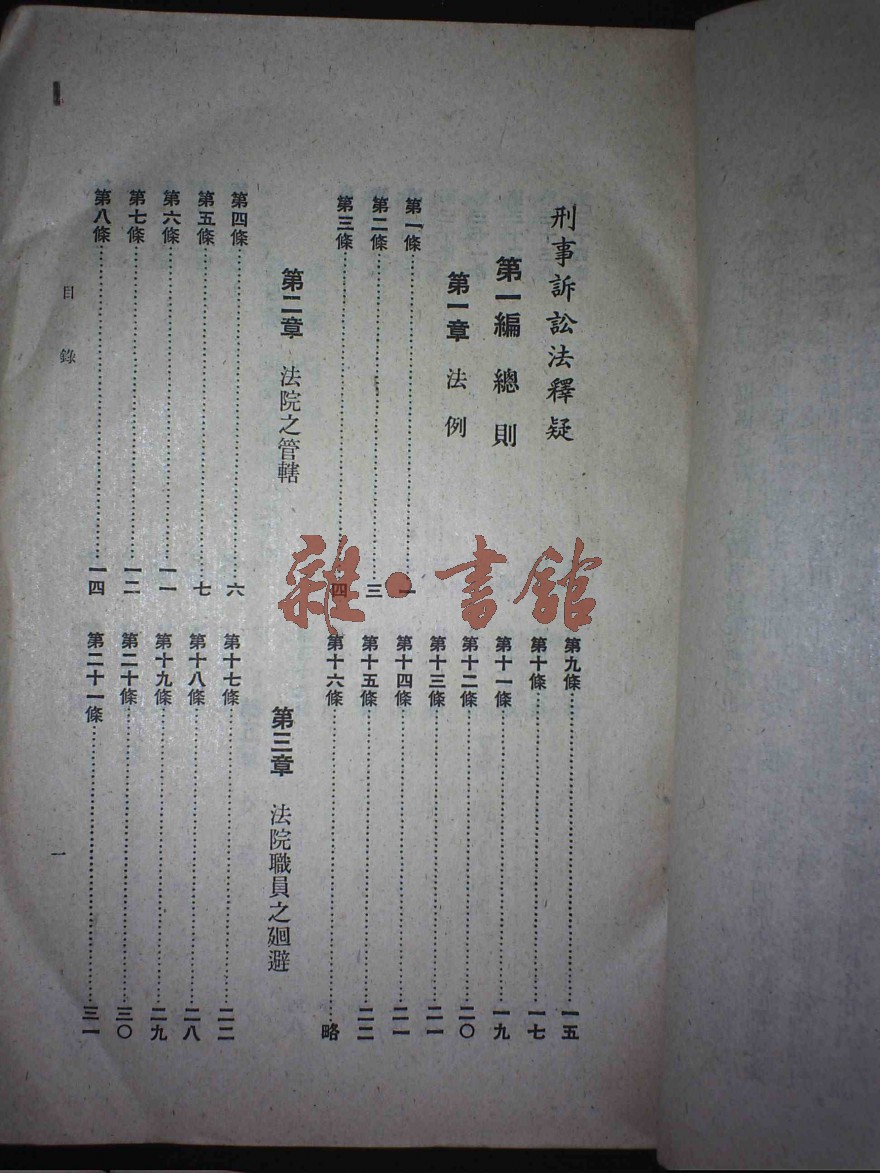 刑事訴訟法釋疑
第一編 總則
第一章 法例
第一條……一
第二條……三
第三條……四
第二章 法院之管轄
第四條……六
第五條……七
第六條……一一
第七條……一二
第八條……一四
第九條……一五
第十條……一七
第十一條……一九
第十二條……二〇
第十三條……二一
第十四條……二一
第十五條……二二
第十六條……略
第三章 法院職員之廻避
第十七條……二二
第十八條……二八
第十九條……二九
第二十條……三〇
第二十一條……三一
目錄
一
雜·書館